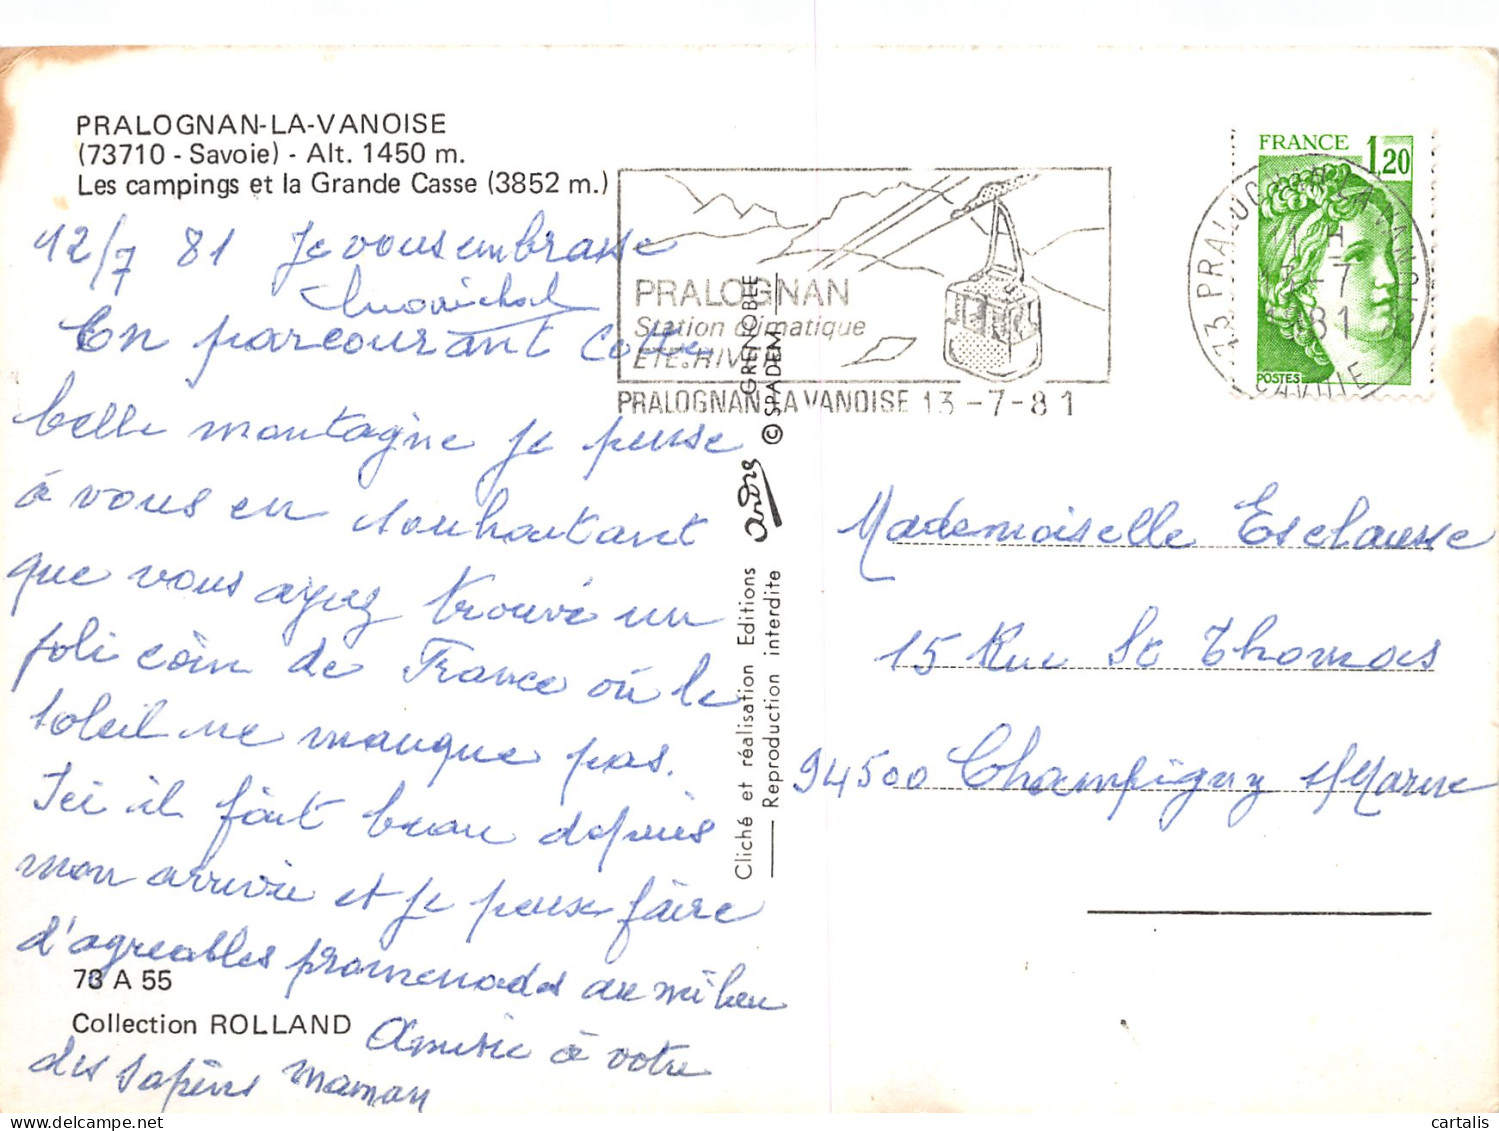 PRALOGNAN-LA-VANOISE
(73710 - Savoie) - Alt. 1450 m.
Les campings et la Grande Casse (3852 m.)
12/7 81 Je vous embrasse
En parcourant cette
belle montagne je pense
à vous en souhaitant
que vous ayez trouvé un
joli coin de France où le
soleil ne manque pas.
Ici il fait beau depuis
mon arrivée et je peux faire
d'agréables promenades au milieu
des sapins
Amitié à votre
maman
73 A 55
Collection ROLLAND
Cliché et réalisation Editions André GRENOBLE
Reproduction interdite © SPADEM
PRALOGNAN
Station climatique
ETE-HIVER
PRALOGNAN LA VANOISE 13-7-81
FRANCE 1,20
POSTES
73 PRALOGNAN LA VANOISE
13-7
1981
SAVOIE
Mademoiselle Esclausse
15 Rue St Thomas
94500 Champigny s/Marne
cartalis